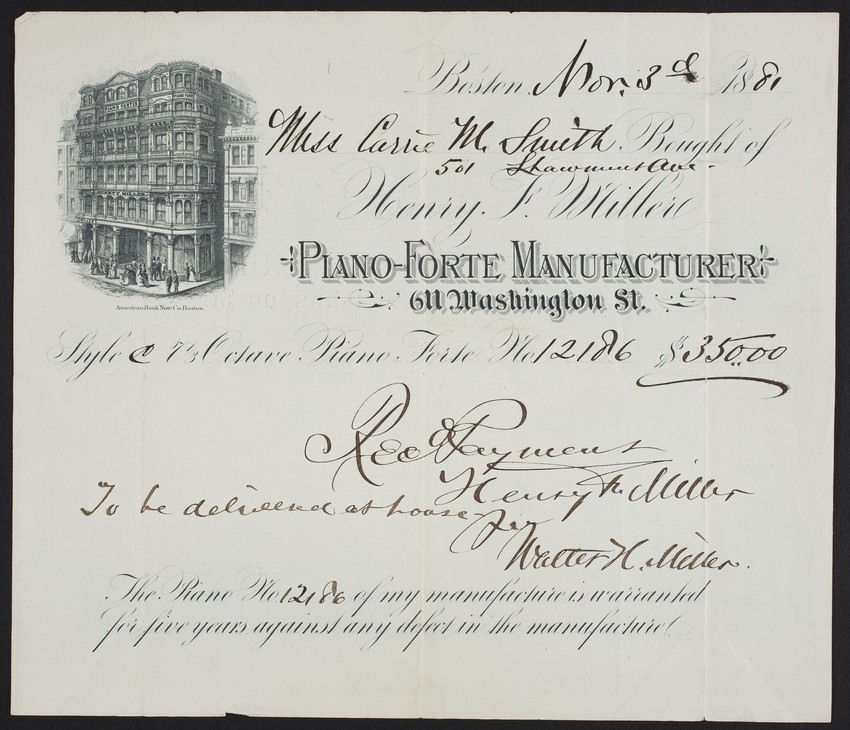 Boston, Nov. 3d 1881
Miss Carrie M. Smith Bought of
501 Shawmut Ave.
Henry F. Miller
PIANO-FORTE MANUFACTURER
611 Washington St.
American Bank Note Co. Boston.
Style C 7⅓ Octave Piano Forte No. 12186 $350.00
Recd Payment
Henry F. Miller
To be delivered at house per
Walter H. Miller.
The Piano No. 12186 of my manufacture is warranted
for five years against any defect in the manufacture.